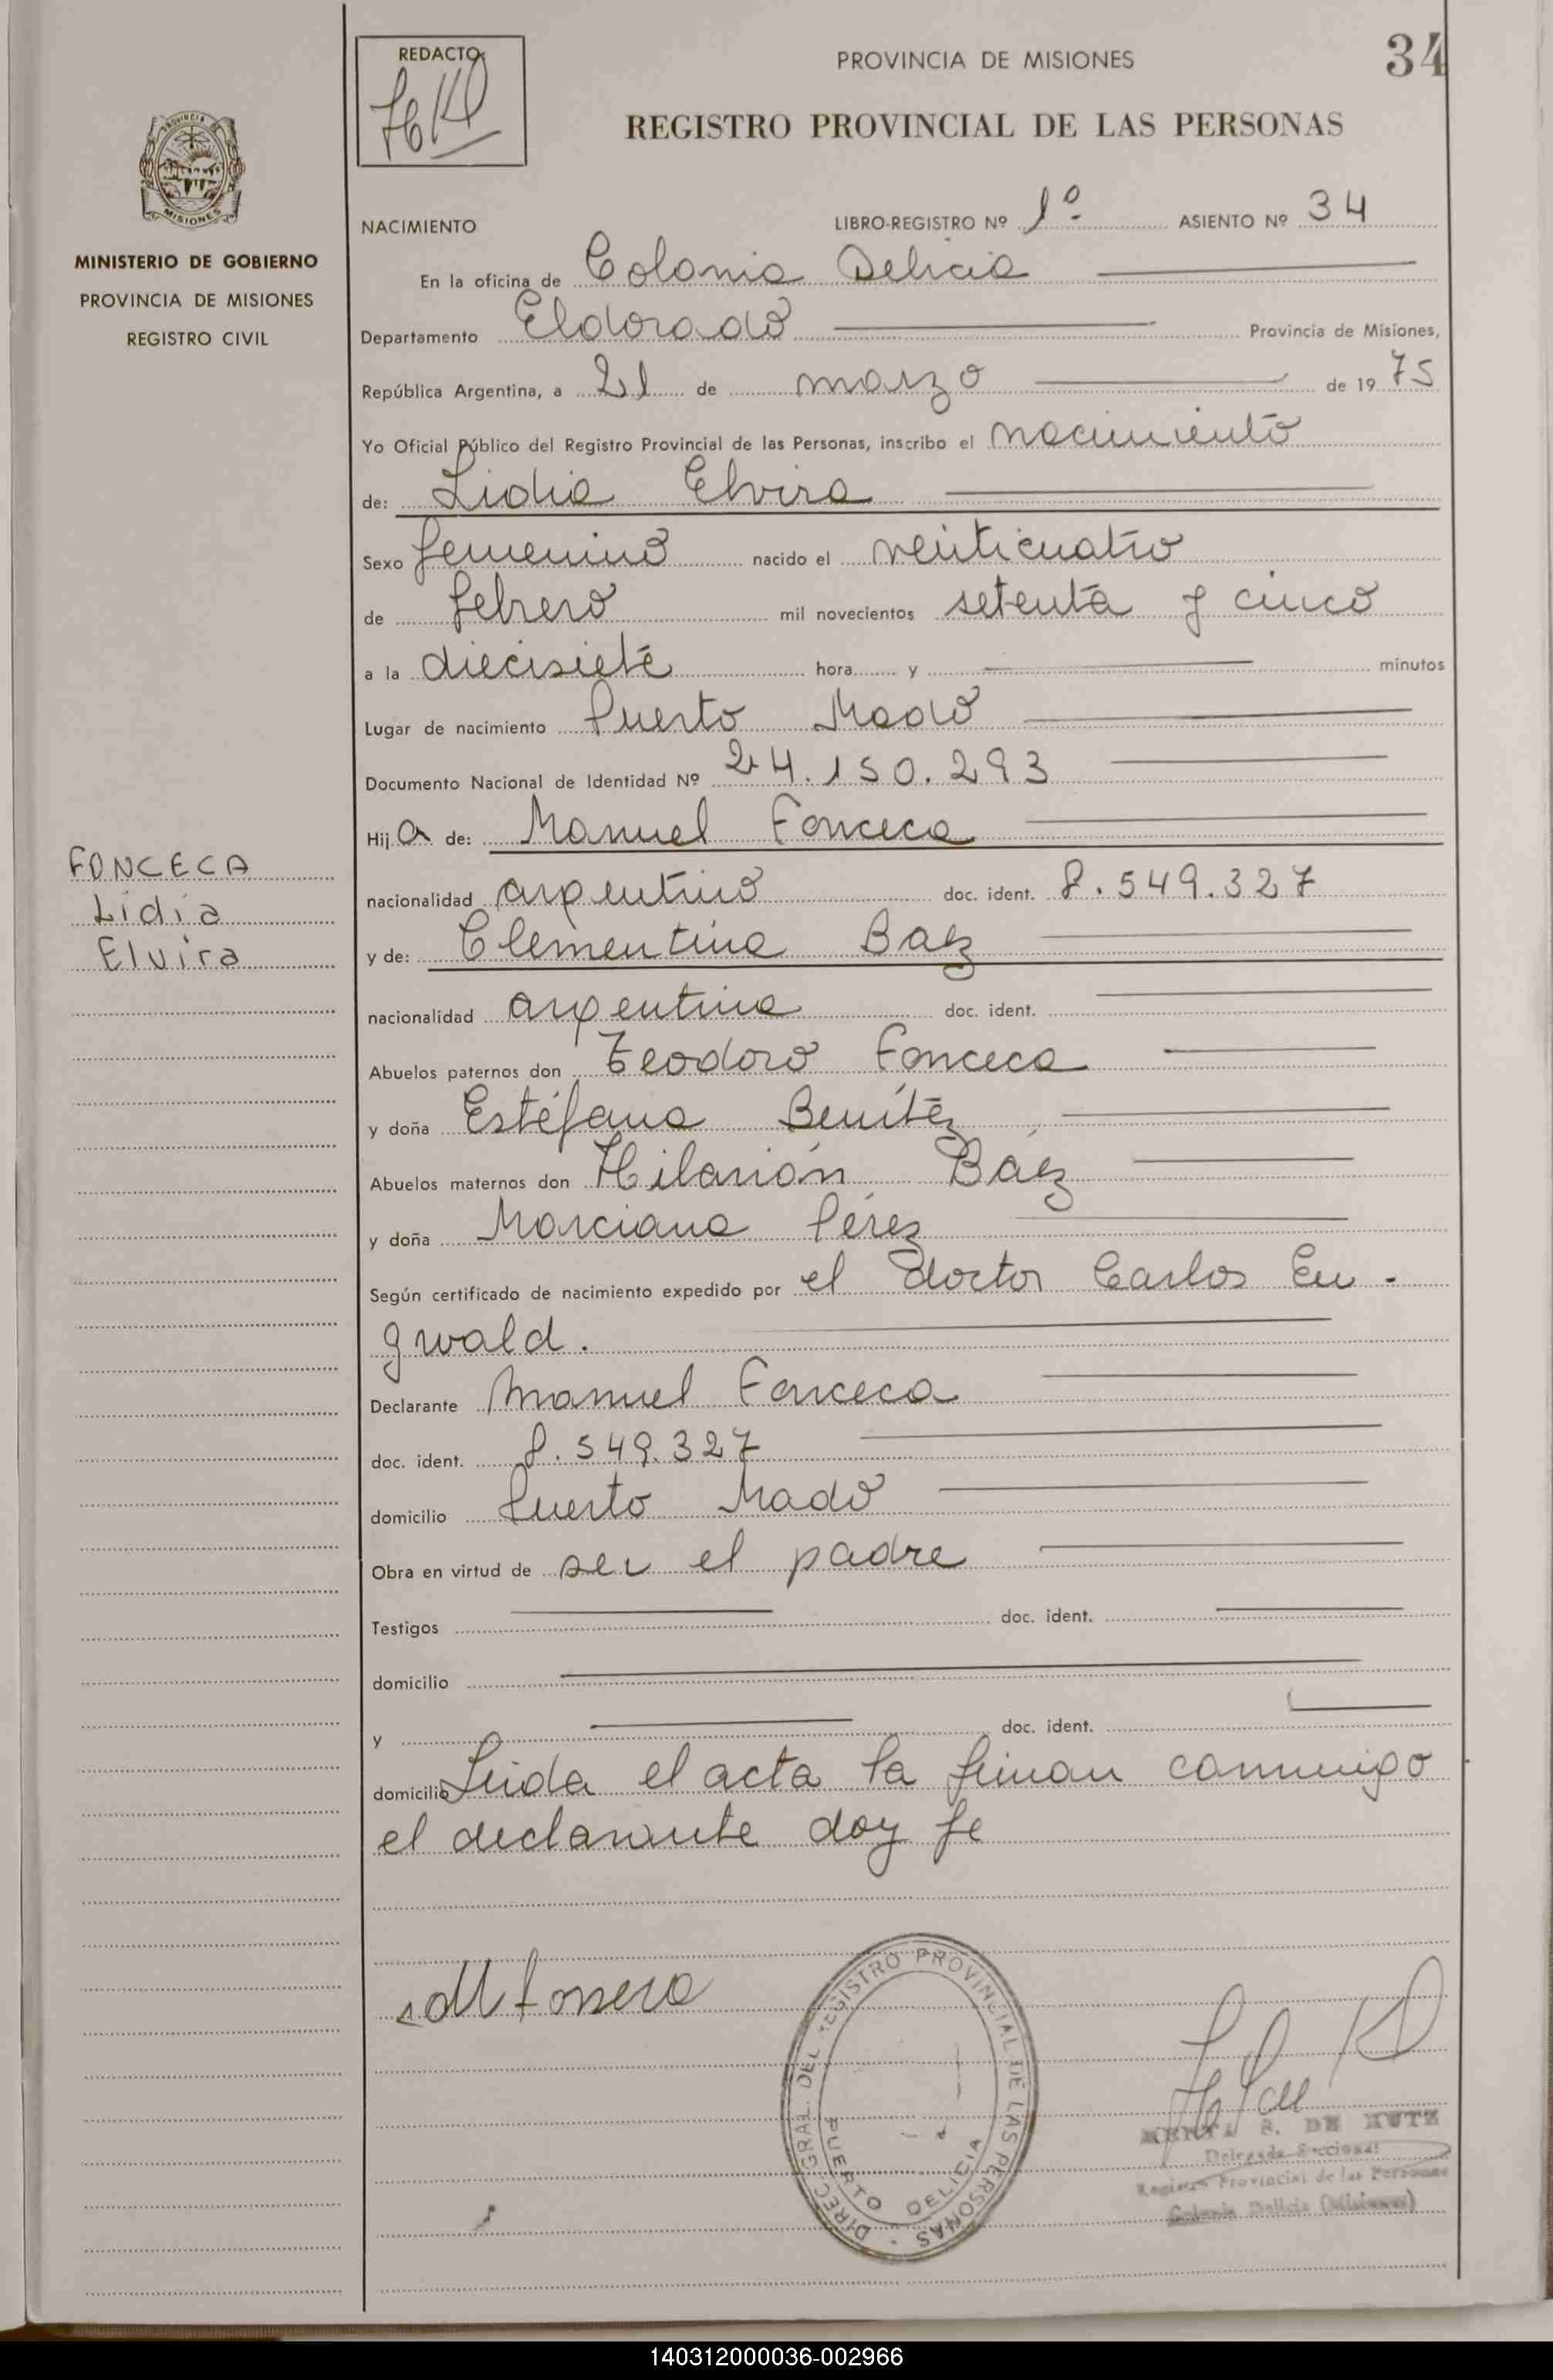 REDACTO
PROVINCIA DE MISIONES
34
REGISTRO PROVINCIAL DE LAS PERSONAS
PROVINCIA DE
MISIONES
MINISTERIO DE GOBIERNO
PROVINCIA DE MISIONES
REGISTRO CIVIL
NACIMIENTO LIBRO-REGISTRO Nº 1º ASIENTO Nº 34
En la oficina de Colonia Delicia
Departamento Eldorado Provincia de Misiones,
República Argentina, a 21 de marzo de 1975
Yo Oficial Público del Registro Provincial de las Personas, inscribo el nacimiento
de: Lidia Elvira
Sexo femenino nacido el veinticuatro
de febrero mil novecientos setenta y cinco
a la diecisiete hora y minutos
Lugar de nacimiento Puerto Mado
Documento Nacional de Identidad Nº 24.150.293
Hija de: Manuel Fonceca
FONCECA
Lidia
Elvira
nacionalidad argentino doc. ident. 8.549.327
y de: Clementina Baez
nacionalidad argentina doc. ident.
Abuelos paternos don Teodoro Fonceca
y doña Estéfana Benítez
Abuelos maternos don Hilarión Báez
y doña Marciana Pérez
Según certificado de nacimiento expedido por el doctor Carlos En-
gwald.
Declarante Manuel Fonceca
doc. ident. 8.549.327
domicilio Puerto Mado
Obra en virtud de ser el padre
Testigos doc. ident.
domicilio
y doc. ident.
domicilio Leida el acta la firman conmigo
el declarante doy fe
DIREC. GRAL. DEL REGISTRO PROVINCIAL DE LAS PERSONAS
PUERTO DELICIA
DE KUTZ
Delegada Seccional
Registro Provincial de las Personas
Colonia Delicia (Misiones)
140312000036-002966